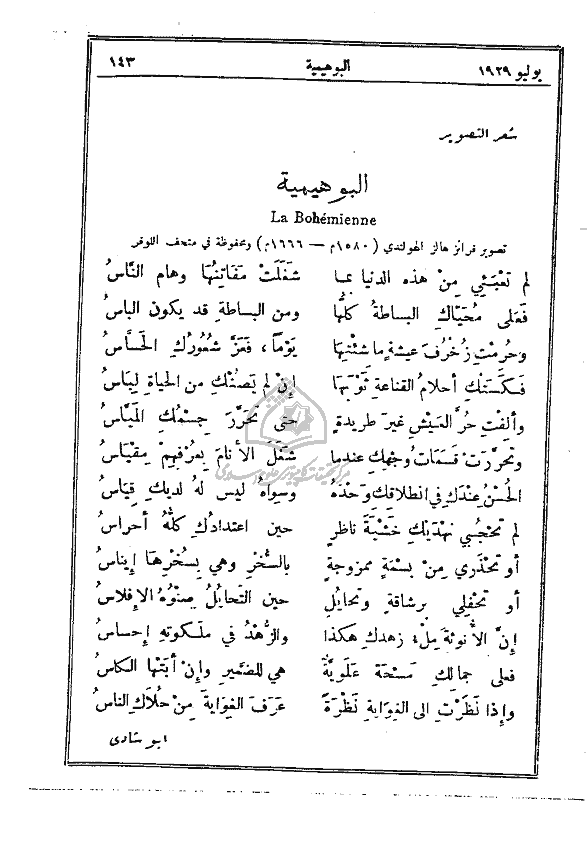 يوليو ١٩٢٩ البوهيمية ١٤٣
شعر التصوير
البوهيمية
La Bohémienne
تصوير فرانز هالز الهولندي (١٥٨٠م — ١٦٦٦م) ومحفوظة في متحف اللوفر
لم تعْبَئي مِنْ هذه الدنيا بما شَغَلَتْ مَفاتِنُها وهام النَّاسُ
فَعَلى مُحَيَّاكِ البساطةُ كلُّها ومن البساطةِ قد يكون الباسُ
وحُرِمْتِ زُخْرُفَ عيشةٍ ما شئتِها يَوْماً، فَعَزَّ شُعُورُكِ الحَسَّاسُ
فكَسَتْكِ أحلامُ القناعةِ ثَوْبَها إنْ لم يَصُنْكِ من الحياةِ لِباسُ
وألِفْتِ حُرَّ العَيْشِ غيرَ طريدةٍ حتى تحَرَّرَ جِسْمُكِ الميَّاسُ
وتحرَّرتْ قَسَماتُ وَجْهِكِ عندما شَغَلَ الأنامَ بِعُرْفِهِمْ مِقْياسُ
الحُسْنُ عِنْدَكِ في انطلاقِكِ وَحْدَهُ وسِواهُ ليس لَهُ لديكِ قِياسُ
لم تَحْجُبي نَهْدَيكِ خَشْيَةَ ناظرٍ حين اعتدادُكِ كلُّهُ أحراسُ
أو تَحْذَري مِنْ بَسْمَةٍ ممزوجةٍ بالسُّخْرِ وهي بِسُخْرِها إيناسُ
أو تَحْفِلي برشاقةٍ وتحايُلٍ حين التحايُلُ صِنْوُهُ الإفلاسُ
إنَّ الأنوثةَ مِلْءُ زهدِكِ هكذا والزُّهْدُ في ملكوتِهِ إحساسُ
فعلى جمالِكِ مَسْحَةٌ عَلَوِيَّةٌ هي للضميرِ وإن أبَتْها الكاسُ
وإذا نَظَرْتِ الى الغِوايةِ نَظْرَةً عَرَفَ الغِوايةَ مِنْ حُلاكِ الناسُ
ابو شادى